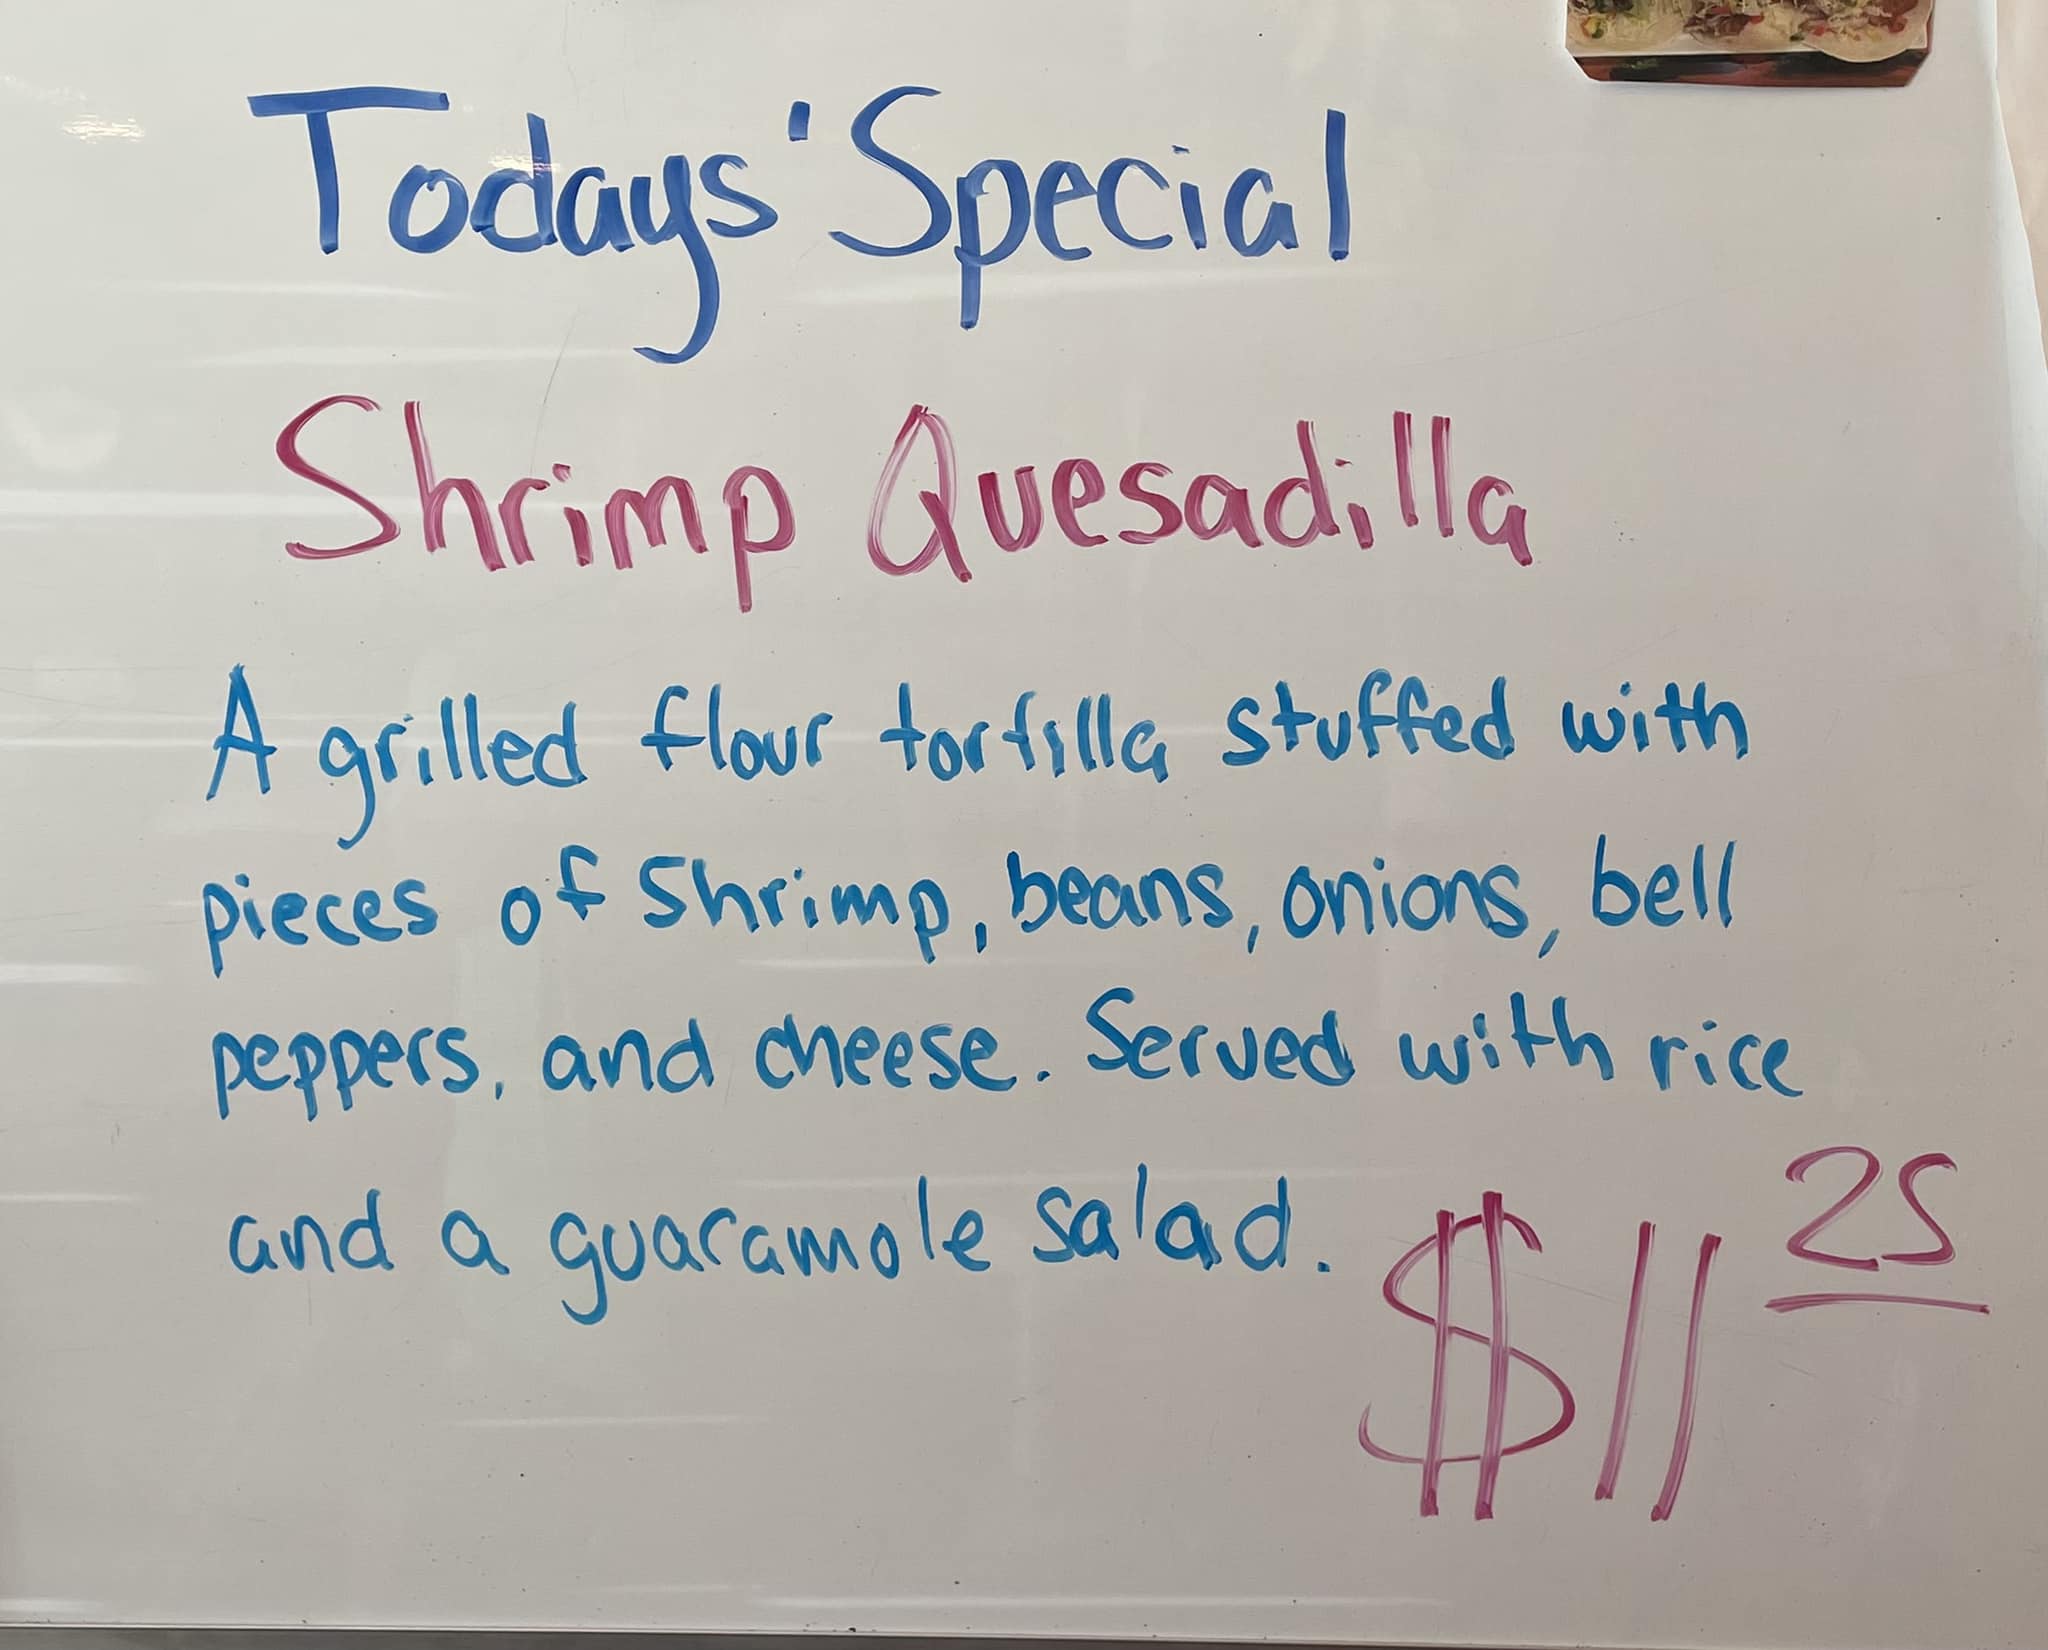 Todays' Special
Shrimp Quesadilla
A grilled flour tortilla stuffed with
pieces of shrimp, beans, onions, bell
peppers, and cheese. Served with rice
and a guacamole salad.
$11 25